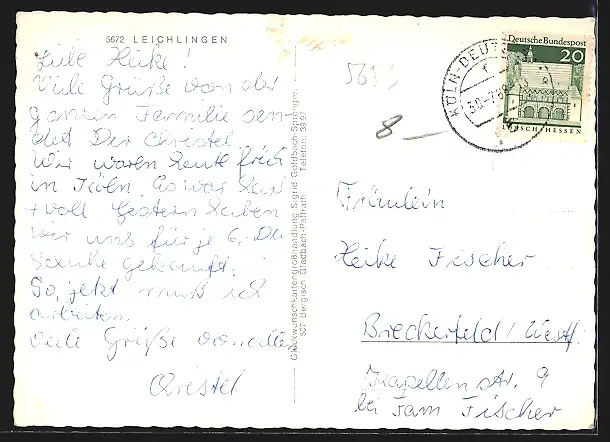 5672 LEICHLINGEN
Liebe Heike!
Viele Grüße von der
ganzen Familie sen
det Dir Christel
Wir waren heute früh
in Köln. Es war
+ voll Gestern haben
wir uns für je 6,- DM
gekauft.
So, jetzt muß ich
arbeiten.
Viele Grüße von allen
Christel
Glückwunschkartengroßhandlung Sigrid Goldbach-Sprenger,
507 Bergisch Gladbach-Paffrath Telefon:
8 —
KÖLN-DEUTZ
Deutsche Bundespost
20
LORSCH/HESSEN
Fräulein
Heike Fischer
Breckerfeld/Westf.
Kapellenstr. 9
bei Fam Fischer